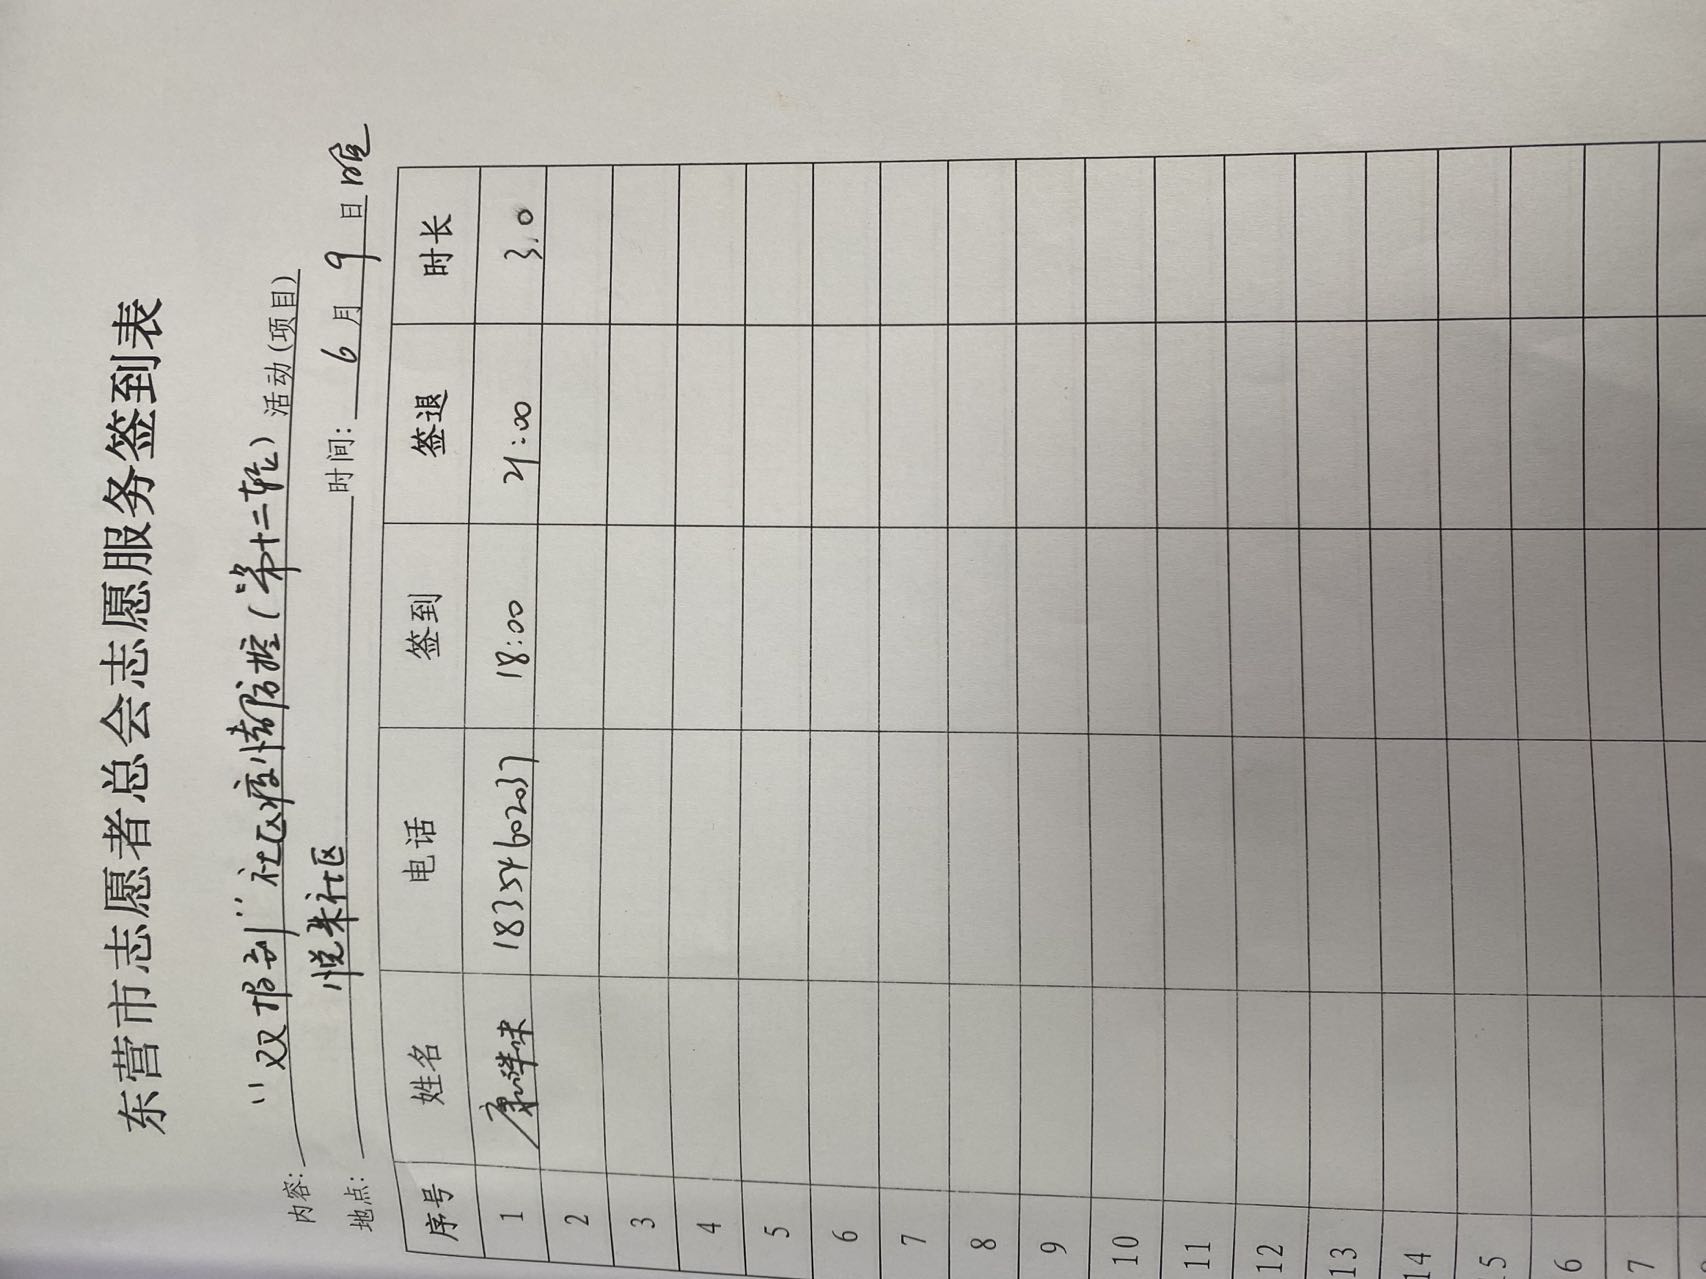 东营市志愿者总会志愿服务签到表
内容: “双报到”社区疫情防控(第十二轮) 活动(项目)
地点: 悦来社区 时间: 6 月 9 日 晚
序号 姓名 电话 签到 签退 时长
1 康 18354602037 18:00 21:00 3.0
2
3
4
5
6
7
8
9
10
11
12
13
14
15
6
7